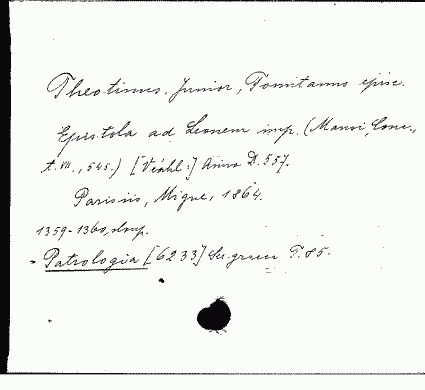 Theotimus, Junior, Tomitanus episc.
Epistola ad Leonem imp. (Mansi, Conc.,
t. VII., 545.) [Viáhl:] Anno D. 557.
Parisiis, Migne, 1864.
1359-1360, slnp.
Patrologia [6233] Ser. graeca T. 85.